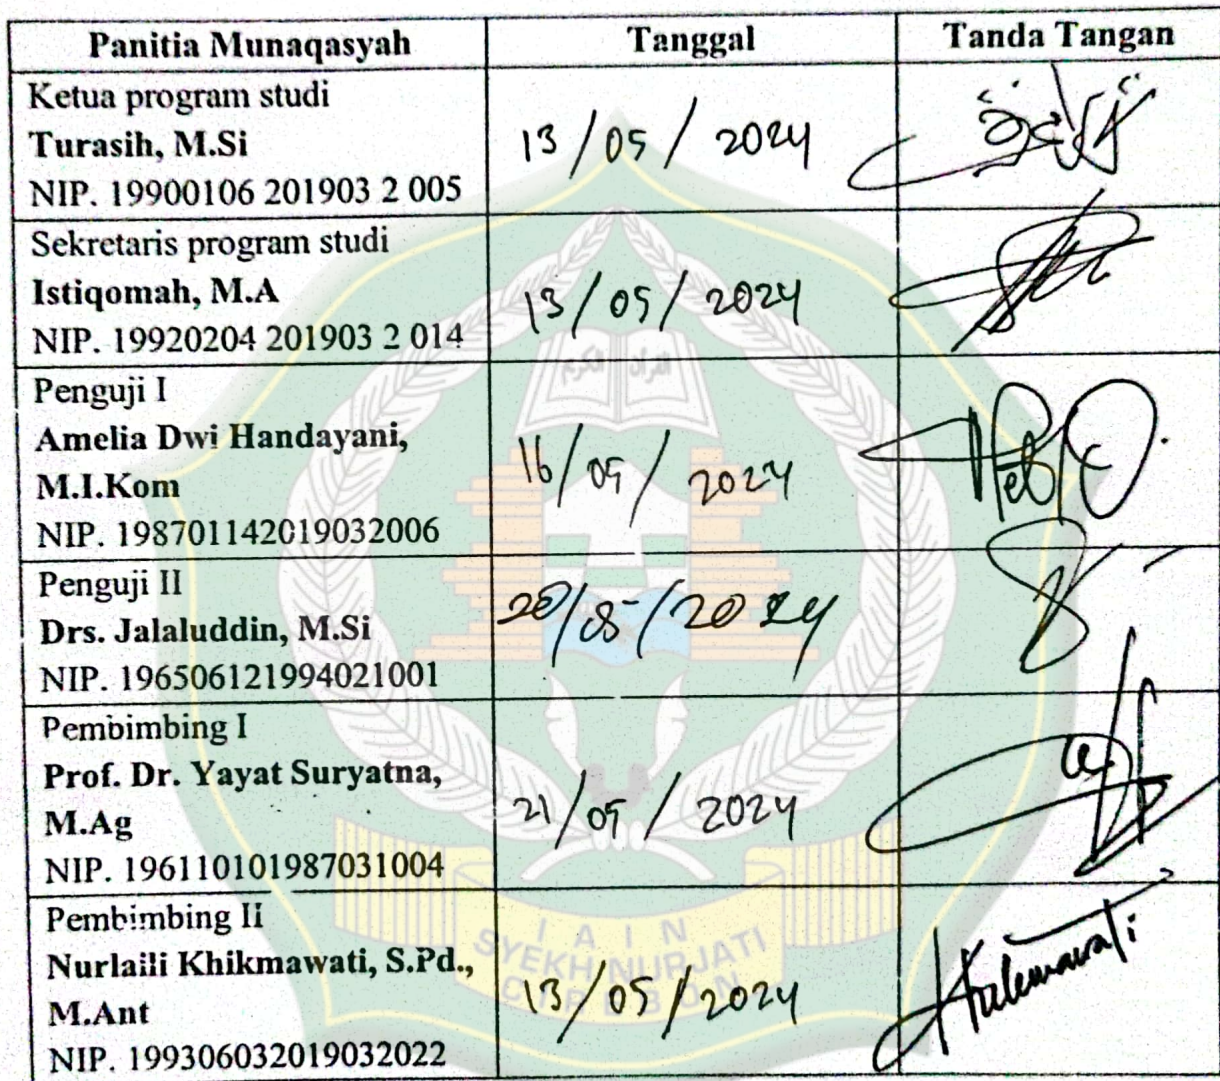 Panitia Munaqasyah Tanggal Tanda Tangan
Ketua program studi
Turasih, M.Si
NIP. 19900106 201903 2 005
13/05/2024
Sekretaris program studi
Istiqomah, M.A
NIP. 19920204 201903 2 014
13/05/2024
Penguji I
Amelia Dwi Handayani,
M.I.Kom
NIP. 198701142019032006
16/05/2024
Penguji II
Drs. Jalaluddin, M.Si
NIP. 196506121994021001
20/05/2024
Pembimbing I
Prof. Dr. Yayat Suryatna,
M.Ag
NIP. 196110101987031004
21/05/2024
Pembimbing II
Nurlaili Khikmawati, S.Pd.,
M.Ant
NIP. 199306032019032022
13/05/2024
القرآن الكريم
IAIN
SYEKH NURJATI
CIREBON